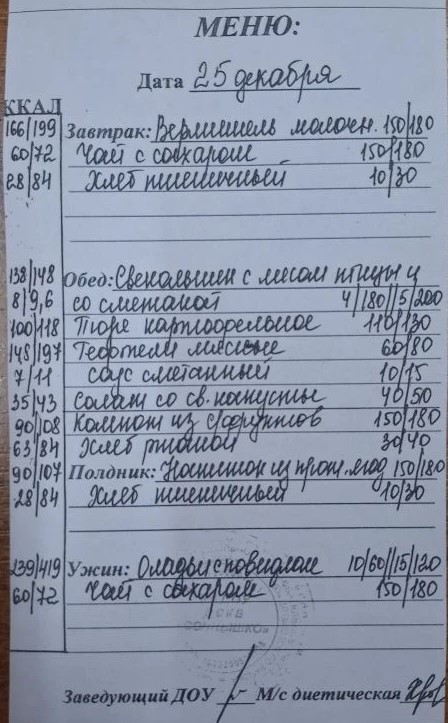 МЕНЮ:
Дата 25 декабря
ККАЛ
166/199 Завтрак: Вермишель молочн. 150/180
60/72 Чай с сахаром 150/180
28/84 Хлеб пшеничный 10/30
138/148 Обед: Свекольник с мясом птицы и
8/9,6 со сметаной 4/180//5/200
100/118 Пюре картофельное 110/130
148/197 Тефтели мясные 60/80
7/11 соус сметанный 10/15
35/43 Салат со св. капусты 40/50
90/108 Компот из с/фруктов 150/180
63/84 Хлеб ржаной 30/40
90/107 Полдник: Напиток из пром. ягод 150/180
28/84 Хлеб пшеничный 10/30
239/419 Ужин: Оладьи с повидлом 10/60//15/120
60/72 Чай с сахаром 150/180
Заведующий ДОУ М/с диетическая